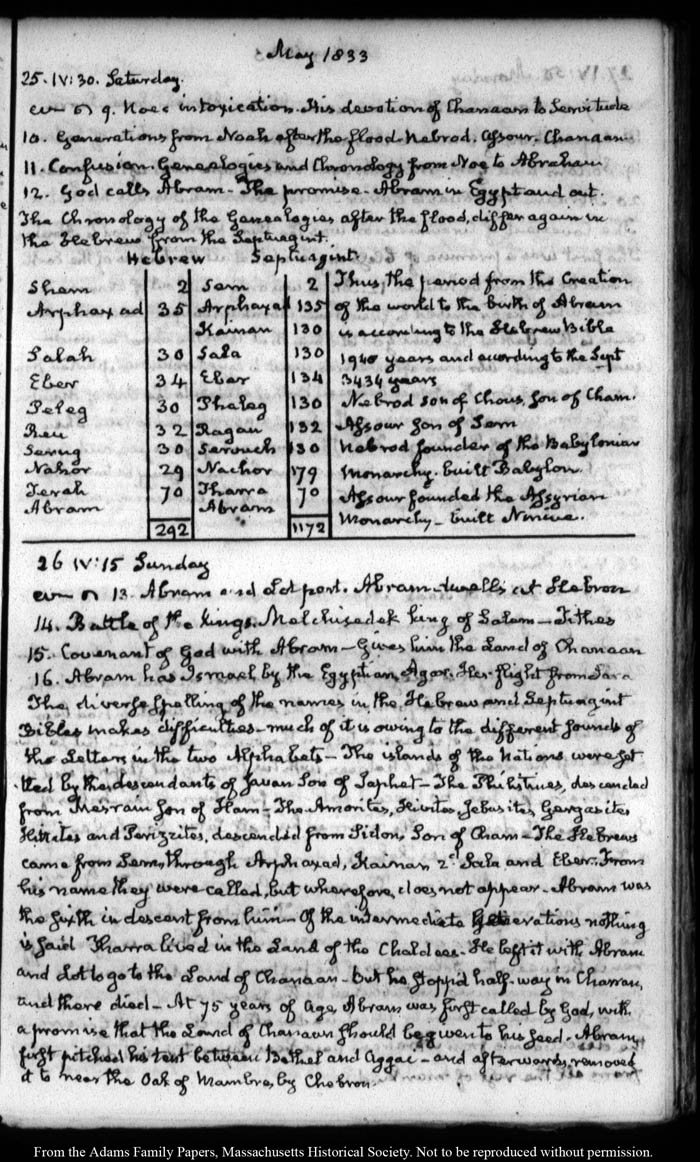 May 1833
25. IV:30. Saturday.
9. Noe's intoxication. His devotion of Chanaan to Servitude
10. Generations from Noah after the flood. Nebrod. Assour. Chanaan
11. Confusion. Genealogies and Chronology from Noe to Abraham
12. God calls Abram - The promise - Abram in Egypt and out.
The Chronology of the Genealogies after the flood, differ again in
the Hebrew from the Septuagint.
Hebrew Septuagint.
Shem 2 Sem 2 Thus, the period from the Creation
Arphaxad 35 Arphaxad 135 of the world to the birth of Abram
Kainan 130 is according to the Hebrew Bible
Salah 30 Sala 130 1940 years and according to the Sept
Eber 34 Eber 134 3434 years
Peleg 30 Phaleg 130 Nebrod son of Chous, son of Cham.
Reu 32 Ragau 132 Assour son of Sem
Serug 30 Serouch 130 Nebrod founder of the Babylonian
Nahor 29 Nachor 179 Monarchy. built Babylon.
Terah 70 Tharra 70 Assour founded the Assyrian
Abram Abram Monarchy - built Ninive.
292 1172
26 IV:15 Sunday
13. Abram and Lot part. Abram dwells at Hebron
14. Battle of the kings. Melchisedek king of Salem - Tithes
15. Covenant of God with Abram - Gives him the Land of Chanaan
16. Abram has Ismael by the Egyptian, Agar. Her flight from Sara
The diverse spelling of the names in the Hebrew and Septuagint
Bibles makes difficulties - much of it is owing to the different sounds of
the Letters in the two Alphabets - The islands of the Nations were set
tled by the descendants of Javan Son of Japhet - The Philistines, descended
from Mesrain Son of Ham - The Amorites, Hivites, Jebusites, Gergasites
Hittites and Perizzites, descended from Sidon, Son of Cham - The Hebrews
came from Sem, through Arphaxad, Kainan 2d Sala and Eber. From
his name they were called, but wherefore, does not appear - Abram was
the sixth in descent from him - Of the intermediate Generations nothing
is said Tharra lived in the Land of the Chaldees - He left it with Abram
and Lot to go to the Land of Chanaan - but he stopp'd half-way in Charran,
and there died - At 75 years of age, Abram was first called by God, with
a promise that the Land of Chanaan should be given to his seed - Abram,
first pitched his tent between Bethel and Aggai - and afterwards, removed
it to near the Oak of Mambre, by Chebron.
From the Adams Family Papers, Massachusetts Historical Society. Not to be reproduced without permission.